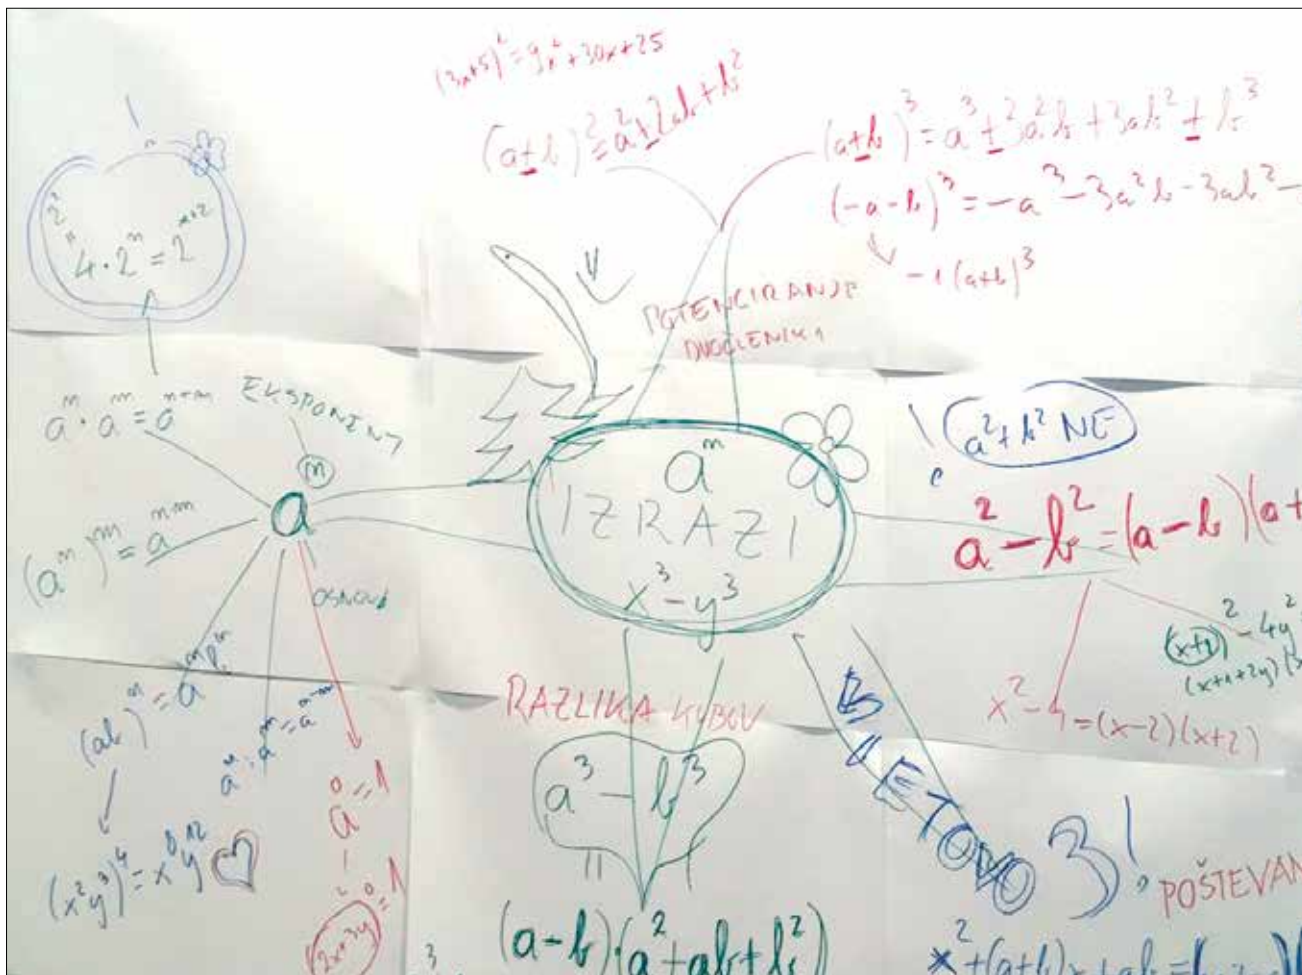 (3x+5)² = 9x²+30x+25
(a±b)² = a²±2ab+b²
(a±b)³ = a³±3a²b+3ab²±b³
(-a-b)³ = -a³-3a²b-3ab²-
-1(a+b)³
POTENCIRANJE
DVOČLENIKA
!
2²
"
4·2ⁿ = 2ⁿ⁺²
aⁿ·aᵐ = aⁿ⁺ᵐ
EKSPONENT
n
a
(aⁿ)ᵐ = aⁿᵐ
OSNOVA
(ab)ⁿ = aⁿbⁿ
aⁿ:aᵐ = aⁿ⁻ᵐ
(x²y³)⁴ = x⁸y¹²
a⁰=1
aⁿ
IZRAZI
x³-y³
! a²+b² NE
a²-b² = (a-b)(a+
x²-4 = (x-2)(x+2)
(x+1)²-4y²
(x+1+2y)(
RAZLIKA KUBOV
a³-b³
(a-b)·(a²+ab+b²)
VIETOVO
3!
POŠTEVAN
x²+(a+b)x+ab=